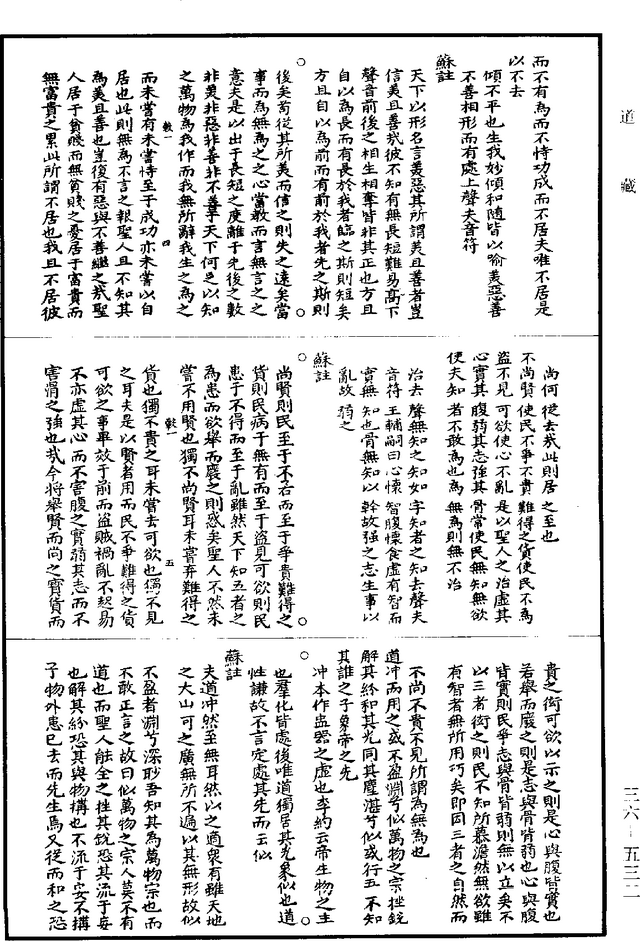 道藏
而不有為而不恃功成而不居夫唯不居是
以不去
傾不平也生我妙傾和隨皆以喻美惡善
不善相形而有處上聲夫音符
蘇註
天下以形名言美惡其所謂美且善者豈
信美且善哉彼不知有無長短難易高下
聲音前後之相生相奪皆非其正也方且
自以為長而有長於我者臨之斯則短矣
方且自以為前而有前於我者先之斯則
後矣苟從其所美而信之則失之遠矣當
事而為無為之之心當教而言無言之之
意夫是以出于長短之度離于先後之數
非美非惡非善非不善天下何足以知
之萬物為我作而我無所辭我生之為之
而未嘗有未嘗恃至于成功亦未嘗以自
居也此則無為不言之報聖人且不知其
為美且善也豈復有惡與不善繼之哉聖
人居于貧賤而無貧賤之憂居于富貴而
無富貴之累此所謂不居也我且不居彼
尚何從去哉此則居之至也
不尚賢使民不爭不貴難得之貨使民不為
盜不見可欲使心不亂是以聖人之治虛其
心實其腹弱其志強其骨常使民無知無欲
使夫知者不敢為也為無為則無不治
治去聲無知之知如字知者之知去聲夫
音符王輔嗣曰心懷智腹懷食虛有智而
實無知也骨無知以幹故強之志生事以
亂故弱之
蘇註
尚賢則民至于不若而至于爭貴難得之
貨則民病于無有而至于盜見可欲則民
患于不得而至于亂雖然天下知五者之
為患而欲舉而廢之則惑矣聖人不然未
嘗不用賢也獨不尚賢耳未嘗棄難得之
貨也獨不貴之耳未嘗去可欲也獨不見
之耳夫是以賢者用而民不爭難得之貨
可欲之事畢效于前而盜賊禍亂不起易
不亦虛其心而不害腹之實弱其志而不
害骨之強也哉今將舉賢而尚之寶貨而
貴之衒可欲以示之則是心與腹皆實也
若舉而廢之則是志與骨皆弱也心與腹
皆實則民爭志與骨皆弱則無以立矣不
以三者衒之則民不知所慕澹然無欲雖
有智者無所用巧矣即因三者之自然而
不尚不貴不見所謂為無為也
道沖而用之或不盈淵兮似萬物之宗挫銳
解其紛和其光同其塵湛兮似或存吾不知
其誰之子象帝之先
沖本作盅器之虛也李約云帝生物之主
也群化皆處後唯道獨居其先象似也道
性謙故不言定處其先而云似
蘇註
夫道沖然至無耳然以之適衆有雖天地
之大山河之廣無所不遍以其無形故似
不盈者淵兮深眇吾知其為萬物宗也而
不敢正言之故曰似萬物之宗人莫不有
道也而聖人能全之挫其銳恐其流于妄
也解其紛恐其與物構也不流于妄不構
于物外患已去而光生焉又從而和之恐
三六-五三二